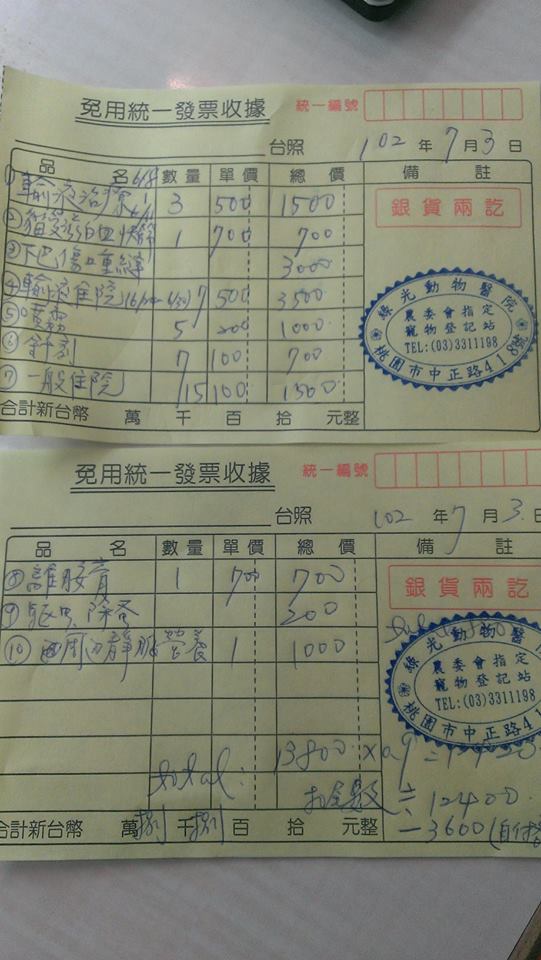 免用統一發票收據 統一編號
台照 102 年 7 月 3 日
品 名 數量 單價 總價 備 註
① 輸液治療 3 500 1500
銀貨兩訖
② 1 700 700
③ 下巴傷口重縫 3000
④ 輸液住院 7 500 3500
⑤ 噴霧 5 200 1000
⑥ 針劑 7 100 700
⑦ 一般住院 15 100 1500
綠光動物醫院
農委會指定
寵物登記站
TEL:(03)3311198
桃園市中正路418號
合計新台幣 萬 千 百 拾 元整
免用統一發票收據 統一編號
台照 102 年 7 月 3 日
品 名 數量 單價 總價 備 註
⑧ 離胺膏 1 700 700
銀貨兩訖
⑨ 驅虫除蚤 200
⑩ 靜脈營養 1 1000
綠光動物醫院
農委會指定
寵物登記站
TEL:(03)3311198
桃園市中正路41
total: 13800 x0.9 = 12420
≒ 12400
合計新台幣 萬 捌 千 捌 百 拾 元整
-3600 (自付